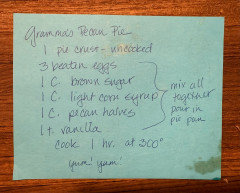 Gramma's Pecan Pie
1 pie crust - uncooked
3 beaten eggs
1 C. brown sugar
1 C. light corn syrup
1 C. pecan halves
1 t. vanilla
mix all
together
pour in
pie pan
cook 1 hr. at 300°
yum! yum!